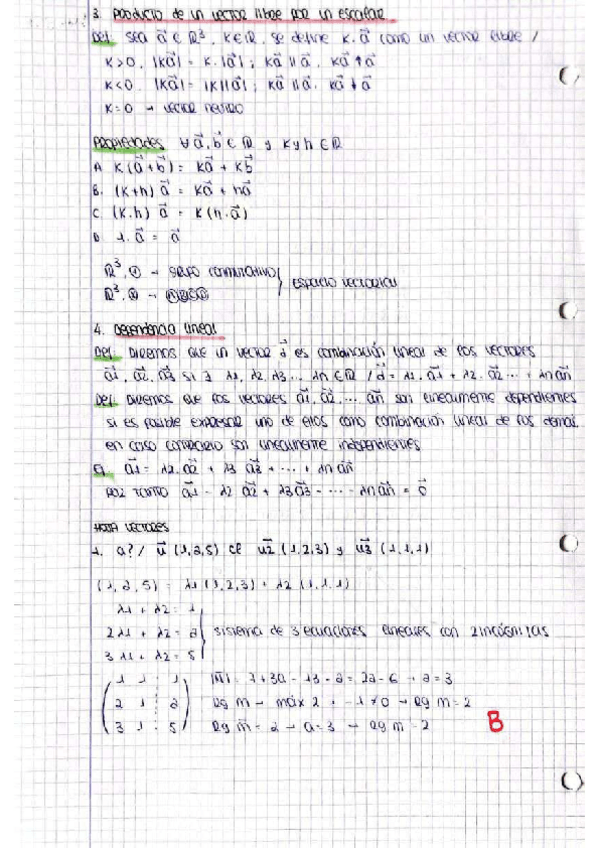 3. PRODUCTO de un vector libre por un escalar
Def. sea a⃗ ∈ R³, K∈R, se define K·a⃗ como un vector libre /
K>0, |Ka⃗| = K·|a⃗| ; Ka⃗ ∥ a⃗, Ka⃗ ↑ a⃗
K<0, |Ka⃗| = |K||a⃗| ; Ka⃗ ∥ a⃗, Ka⃗ ↓ a⃗
K=0 → vector neutro
Propiedades ∀ a⃗, b⃗ ∈ R y K y h ∈ R
A K(a⃗+b⃗) = Ka⃗ + Kb⃗
B. (K+h) a⃗ = Ka⃗ + ha⃗
C. (K.h) a⃗ = K(h.a⃗)
D 1. a⃗ = a⃗
R³, ⊕ → grupo conmutativo
R³, → ⒶⒷⒸⒹ
espacio vectorial
4. Dependencia lineal
Def. Diremos que un vector a⃗ es combinación lineal de los vectores
a⃗1, a⃗2, a⃗3 si ∃ λ1, λ2, λ3... λn ∈ R / a⃗ = λ1·a⃗1 + λ2·a⃗2 ... + λn a⃗n
Def. Diremos que los vectores a⃗1, a⃗2, ... a⃗n son linealmente dependientes
si es posible expresar uno de ellos como combinación lineal de los demás,
en caso contrario son linealmente independientes
Ej. a⃗1 = λ2·a⃗2 + λ3 a⃗3 + ... + λn a⃗n
Por tanto a⃗1 - λ2 a⃗2 + λ3 a⃗3 - ... - λn a⃗n = 0⃗
HOJA VECTORES
1. a? / u⃗ (1,a,5) CL u⃗2 (1,2,3) y u⃗3 (1,1,1)
(1,a,5) = λ1 (1,2,3) + λ2 (1,1,1)
λ1 + λ2 = 1
2λ1 + λ2 = a
3λ1 + λ2 = 5
sistema de 3 ecuaciones lineales con 2 incógnitas
1 1 1
2 1 a
3 1 5
|M|: 7+3a-13-a = 2a-6 → a=3
Rg M → máx 2, -1≠0 → Rg M = 2
Rg M = 2 → a=3 → Rg M = 2
B